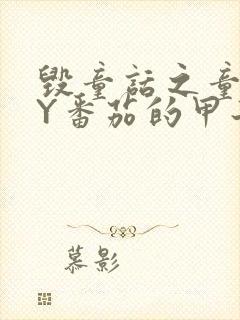 毁童话之童
Y番茄的甲
慕影